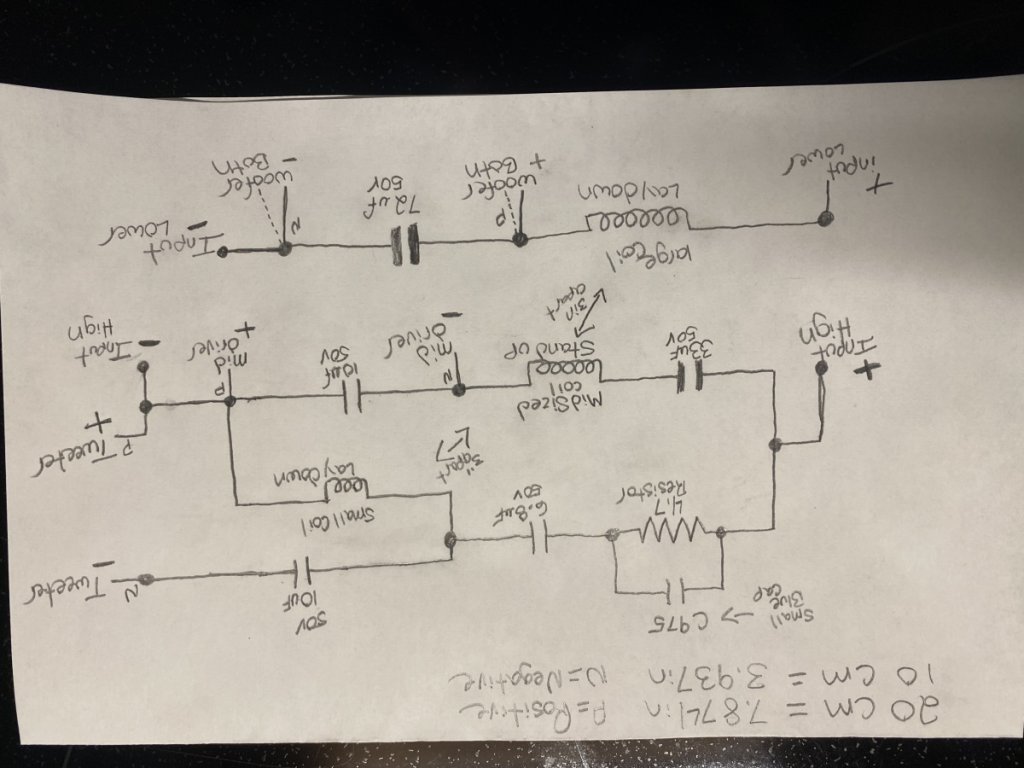 20 cm = 7.874in P=Positive
10 cm = 3.937in N=Negative
Small
Blue
cap
→ C975
50V
10uF
N
Tweeter
−
4.7
Resistor
6.8uF
50V
Small Coil
Lay down
3" apart
P Tweeter
+
+
Input
High
33uF
50V
Mid Sized
coil
Stand up
N
mid
driver
−
10uF
50V
P
mid
driver
+
Input
High
−
3in
apart
large coil
Laydown
+
input
Lower
P
woofer
+ Both
72uf
50V
N
woofer
− Both
Input
Lower
−